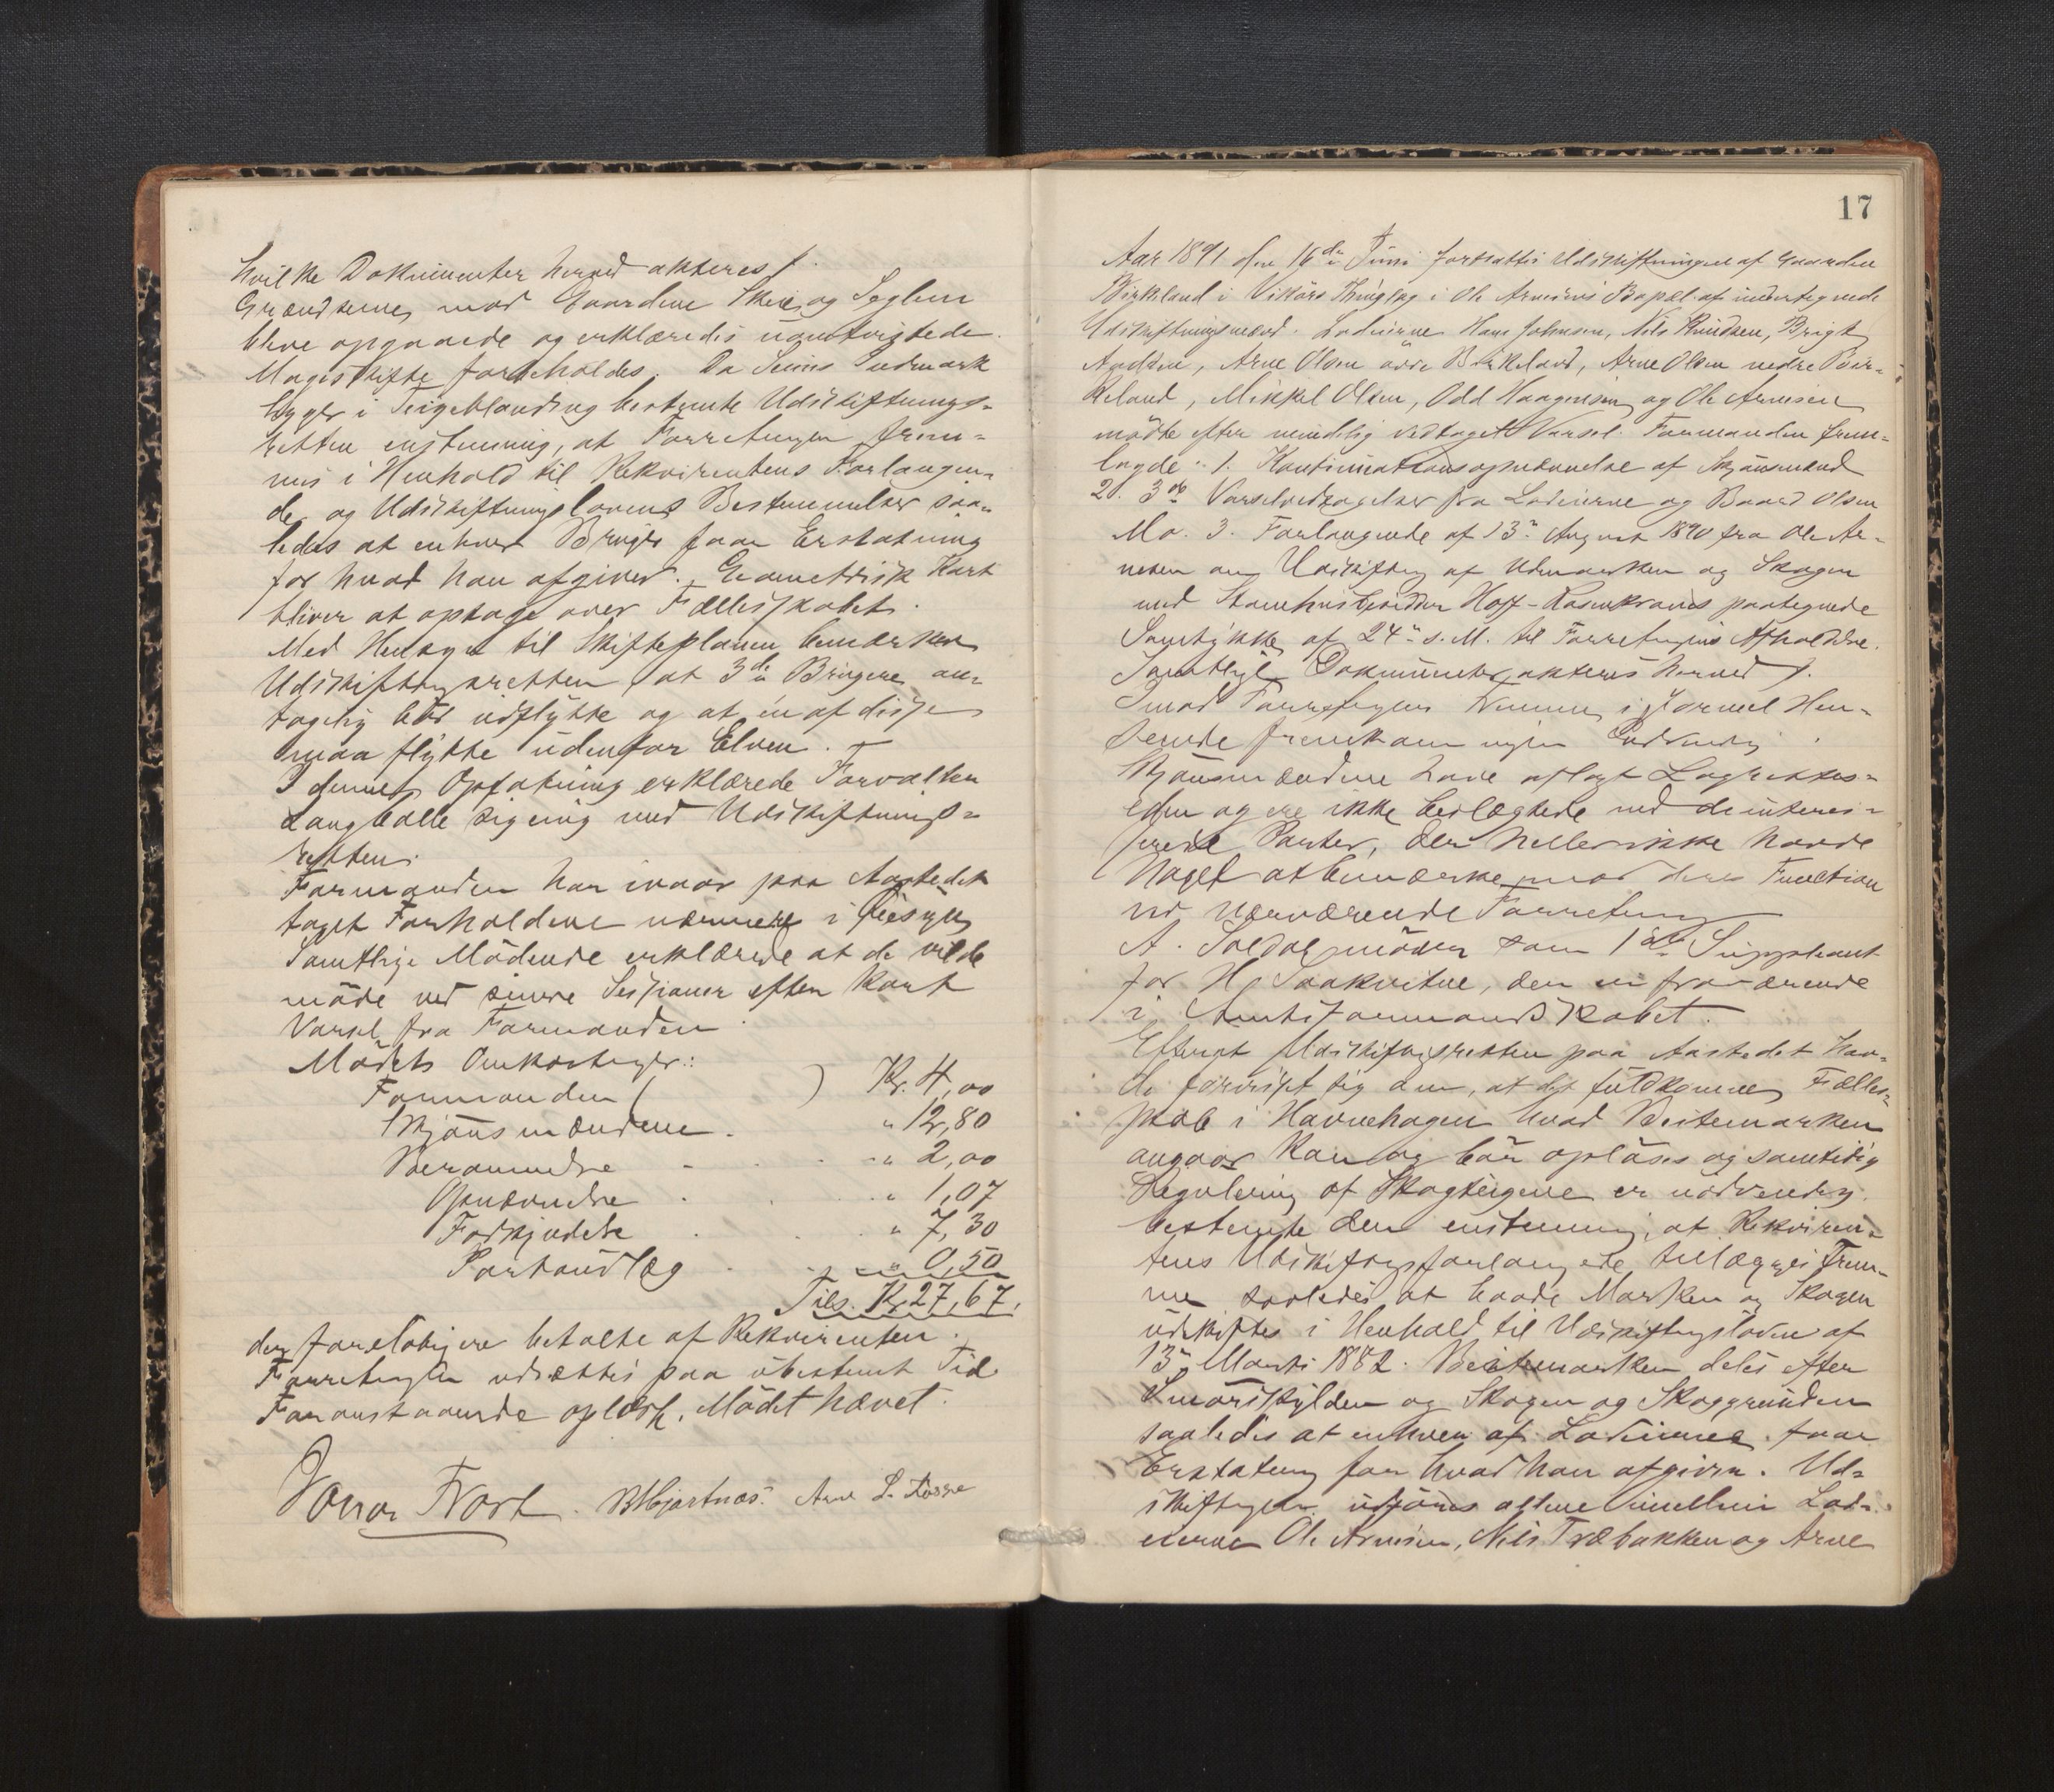 hvilke Dokumenter herved akteres ſ.
Grændserne mod Gaardene Skeie og Seglem
bleve opgaaede og erklæredes uomtvistede.
Mageskifte forbeholdes. Da Seims Indmark
ligger i Teigeblanding bestemte Udskiftnings-
retten enstemmig, at Forretningen frem-
mes i Henhold til Rekvirentens Forlangen-
de og Udskiftningslovens Bestemmelser saa-
ledes at enhver Bruger faar Erstatning
for hvad han afgiver. Geometrisk Kart
bliver at optage over Fællesskabet.
Med Hensyn til Skifteplanen bemærker
Udskiftningsretten, at 3de Brugere an-
tagelig bør udflytte og at en af disse
maa flytte udenfor Elven.
I denne Opfatning erklærede Forvalter
Langballe sig enig med Udskiftnings-
retten.
Formanden har ivaar paa Aastedet
taget Forholdene nærmere i Øiesyn
Samtlige Mødende erklærede at de vilde
møde ved senere Sessioner efter kort
Varsel fra Formanden.
Mødets Omkostninger:
Formanden ( ) Kr. 4,00
Skjønsmændene . " 12,80
Berammelse . . " 2,00
Opnævnelse . . " 1,07
Forkyndelse . . " 7,30
Portoudlæg . . " 0,50
Tils. Kr. 27,67.
der foreløbig ere betalte af Rekvirenten.
Forretningen udsættes paa ubestemt Tid
Foranstaaende oplæst. Mødet hævet.
Jonas Frost. B Hjartnæs. Arne L.
17
Aar 1891 den 16de Juni fortsattes Udskiftningen af Gaarden
Birkeland i Vikørs Thinglag i Ole Arnesens Bopæl af undertegnede
Udskiftningsmænd. Lodeierne Hans Johnsen, Nils Knudsen, Brigt
Andersen, Arne Olsen øvre Birkeland, Arne Olsen nedre Bir-
keland, Mikkel Olsen, Odd Haagensen og Ole Arnesen
mødte efter mindelig vedtaget Varsel. Formanden frem-
lagde: 1. Kontinuationsopnævnelse af Skjønsmænd
2. 3de Varselvedtagelser fra Lodeierne og Baard Olsen
Mo. 3. Forlangende af 13de August 1890 fra Ole Ar-
nesen om Udskiftning af Udmarken og Skogen
med Stamhusbesidder Hoff-Rosenkrones paategnede
Samtykke af 24de s. M. til Forretningens Afholdelse.
Samtlige Dokumenter akteres herved ſ.
Imod Forretningens Fremme i formel Hen-
seende fremkom ingen Indvending.
Skjønsmændene have aflagt Lagrettes-
eden og ere ikke beslægtede med de interes-
serede Parter, der heller ikke havde
Noget at bemærke mod deres Function
ved nærværende Forretning
A. møder som 1ste Suppleant
for H. Saakvitne, der er fraværende
i Amtsformandskabet.
Efterat Udskiftningsretten paa Aastedet hav-
de forvisset sig om, at det fuldkomne Fælles-
skab i Havnehagen hvad Beitemarken
angaar kan og bør opløses og samtidig
Regulering af Skogteigene er nødvendig
bestemte den enstemmig, at Rekviren-
tens Udskiftningsforlangende tillægges Frem-
me saaledes at baade Marken og Skogen
udskiftes i Henhold til Udskiftningsloven af
13de Marts 1882. Beitemarken deles efter
Smørskylden og Skogen og Skoggrunden
saaledes at enhver af Lodeierne faar
Erstatning for hvad han afgiver. Ud-
skiftningen udføres altsaa imellem Lod-
eierne Ole Arnesen, Nils Træbakken og Arne